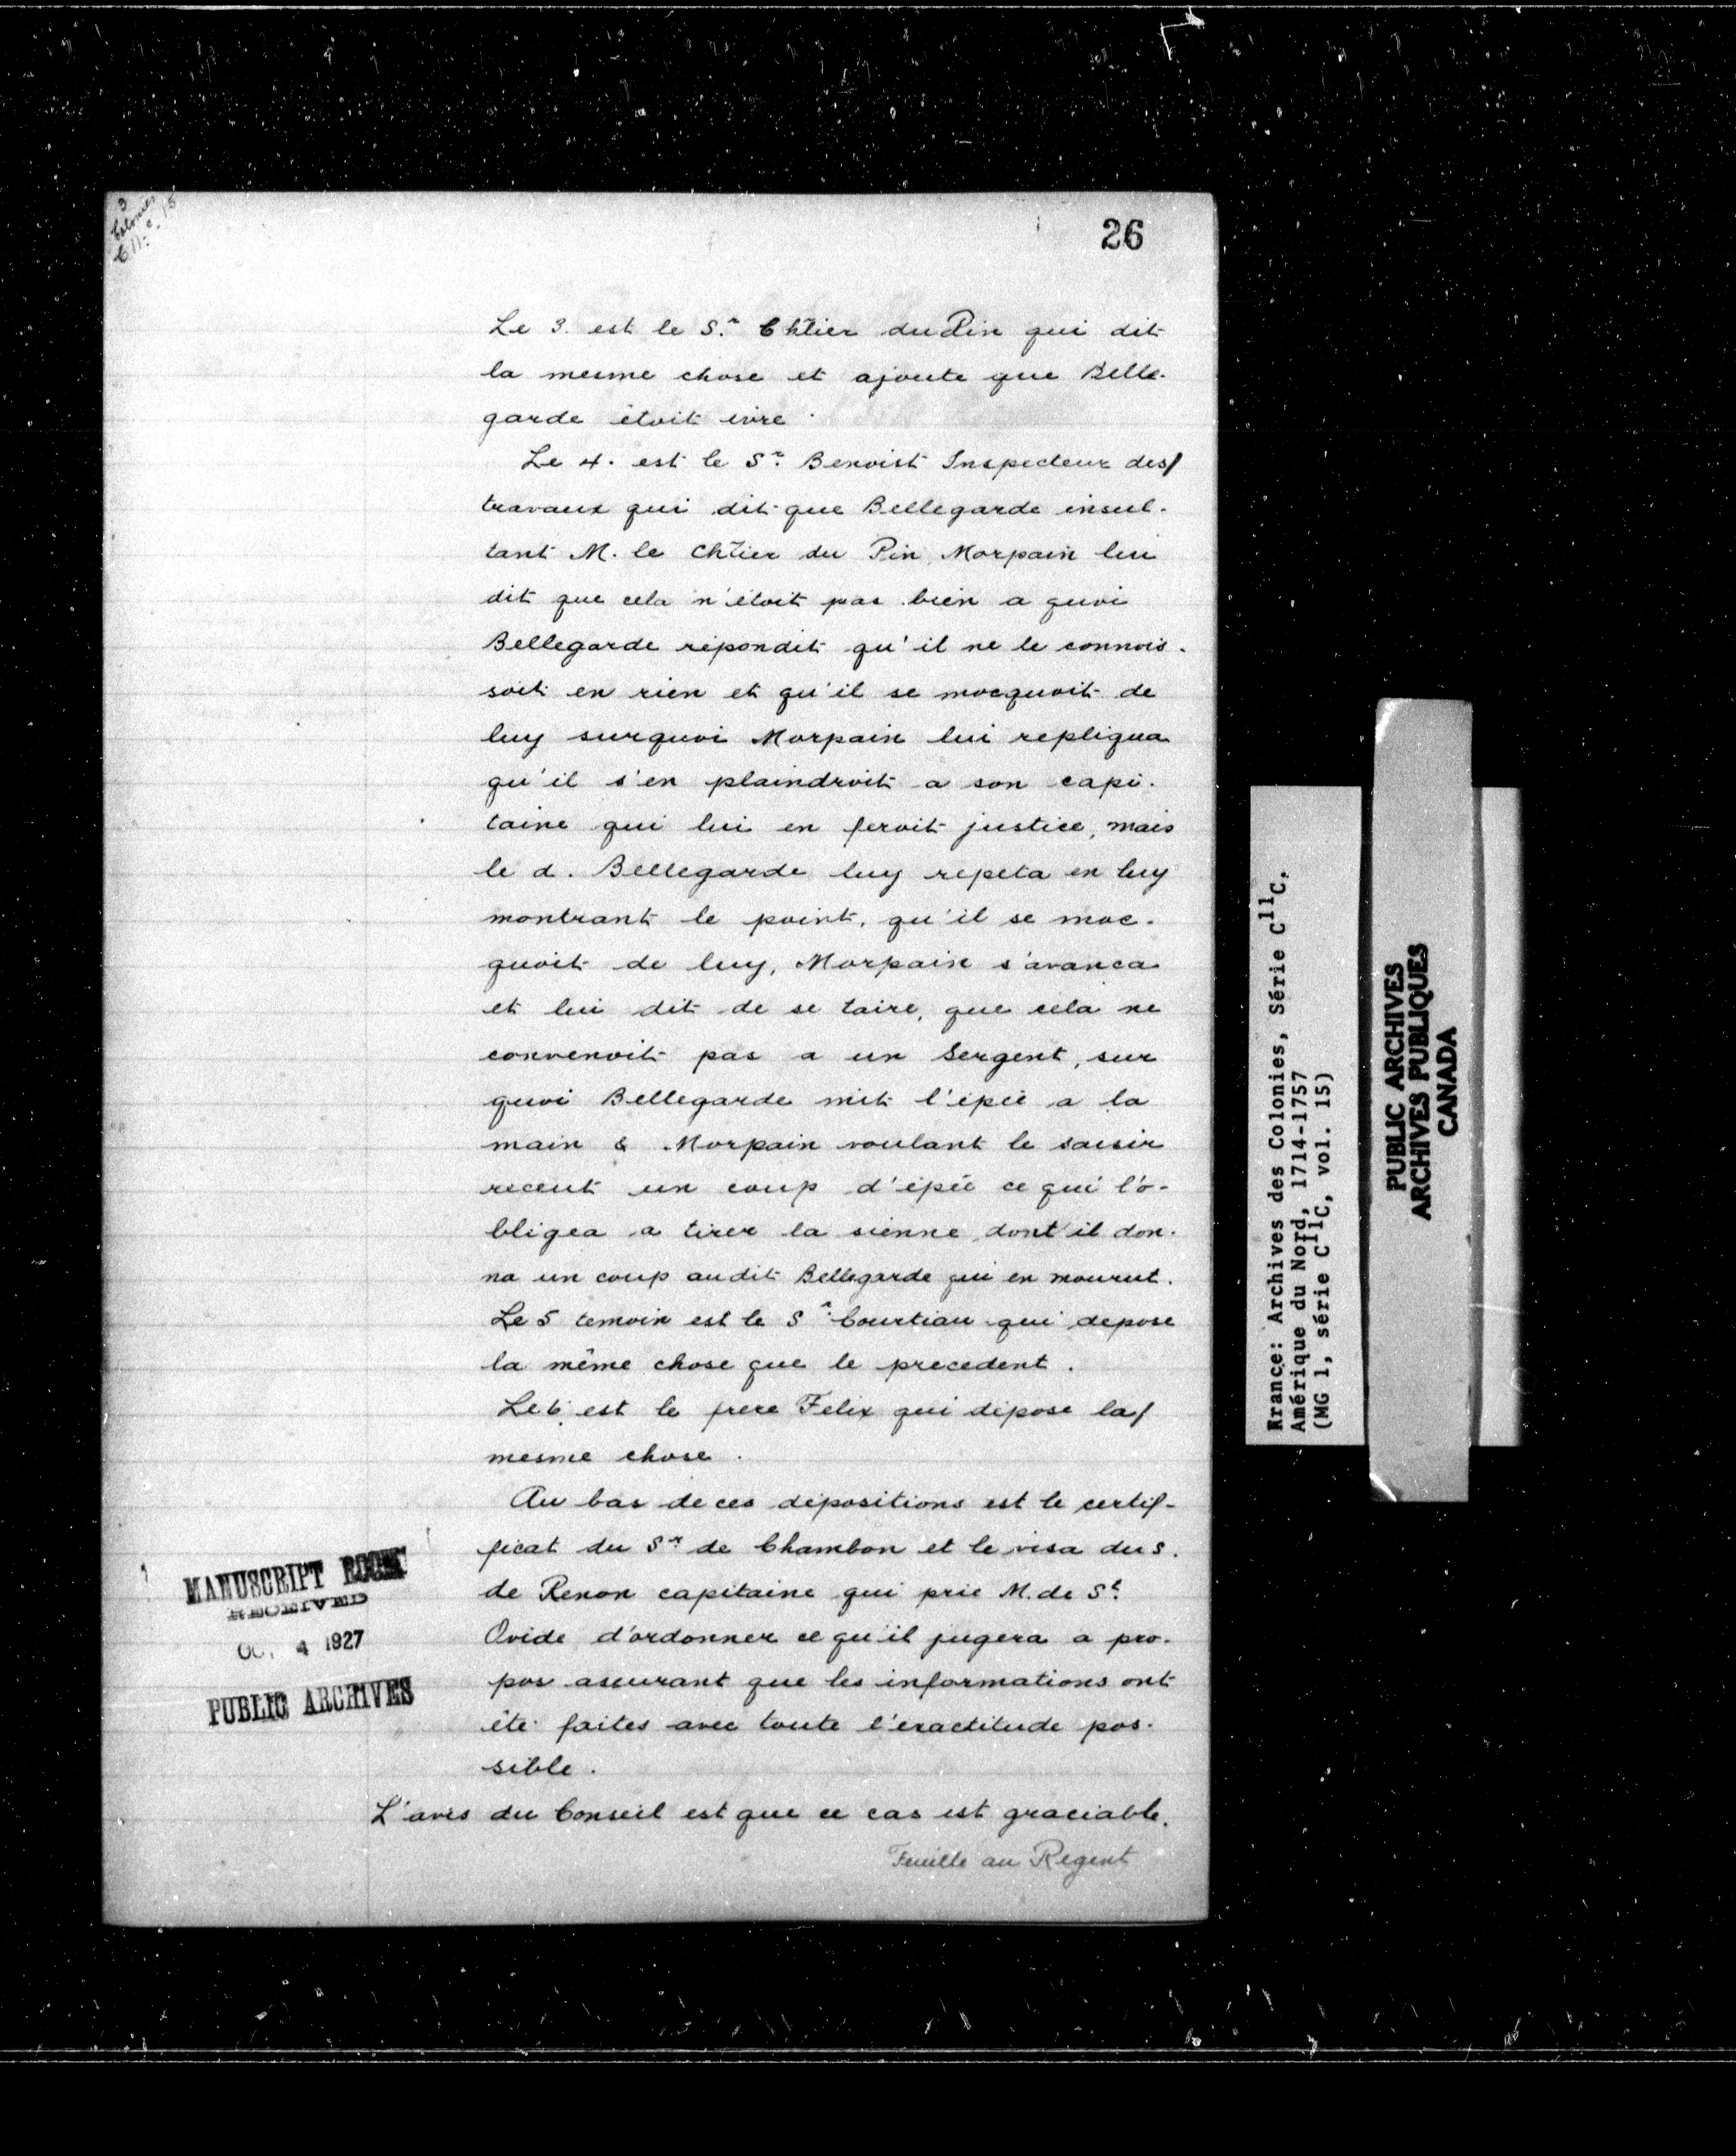 3
Colonies
C 11 c. 15
26
Le 3. est le S.r Chlier du Pin qui dit
la mesme chose et ajoute que Belle-
garde étoit ivre.
Le 4. est le Sr. Benoist Inspecteur des/
travaux qui dit que Bellegarde insul-
tant M. le Chlier du Pin, Morpain lui
dit que cela n'étoit pas bien a quoi
Bellegarde répondit qu'il ne le connois-
soit en rien et qu'il se mocquoit de
luy surquoi Morpain lui repliqua
qu'il s'en plaindroit a son capi-
taine qui lui en feroit justice, mais
le d. Bellegarde luy repeta en luy
montrant le point, qu'il se moc-
quoit de luy, Morpain s'avanca
et lui dit de se taire, que cela ne
convenoit pas a un Sergent, sur
quoi Bellegarde mit l'épée a la
main & Morpain voulant le saisir
receut un coup d'épée ce qui l'o-
bligea a tirer la sienne dont il don-
na un coup audit Bellegarde qui en mourut.
Le 5 temoin est le Sr. Courtiau qui depose
la même chose que le precedent.
Le 6. est le frere Felix qui dépose la/
mesme chose.
Au bas de ces dépositions est le certif-
ficat du Sr de Chambon et le visa du s.
de Renon capitaine qui prie M. de St.
Ovide d'ordonner ce qu'il jugera a pro-
pos assurant que les informations ont
été faites avec toute l'exactitude pos-
sible.
L'avis du Conseil est que ce cas est graciable.
Feuille au Regent
MANUSCRIPT ROOM
RECEIVED
OC. 4 1927
PUBLIC ARCHIVES
France: Archives des Colonies, Série C11C,
Amérique du Nord, 1714-1757
(MG 1, série C11C, vol. 15)
PUBLIC ARCHIVES
ARCHIVES PUBLIQUES
CANADA